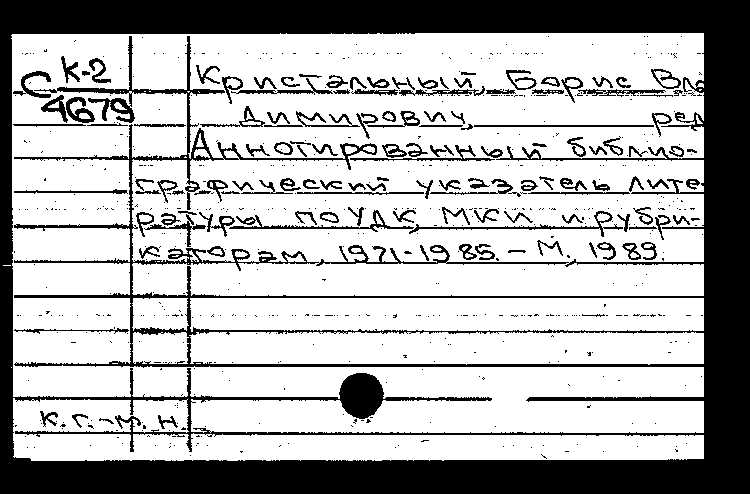 С К-2
4679
Кристальный, Борис Вла
димирович, ред
Аннотированный библио-
графический указатель лите-
ратуры по УДК, МКИ и рубри-
каторам, 1971-1985. - М., 1989.
к. г.-м. н.